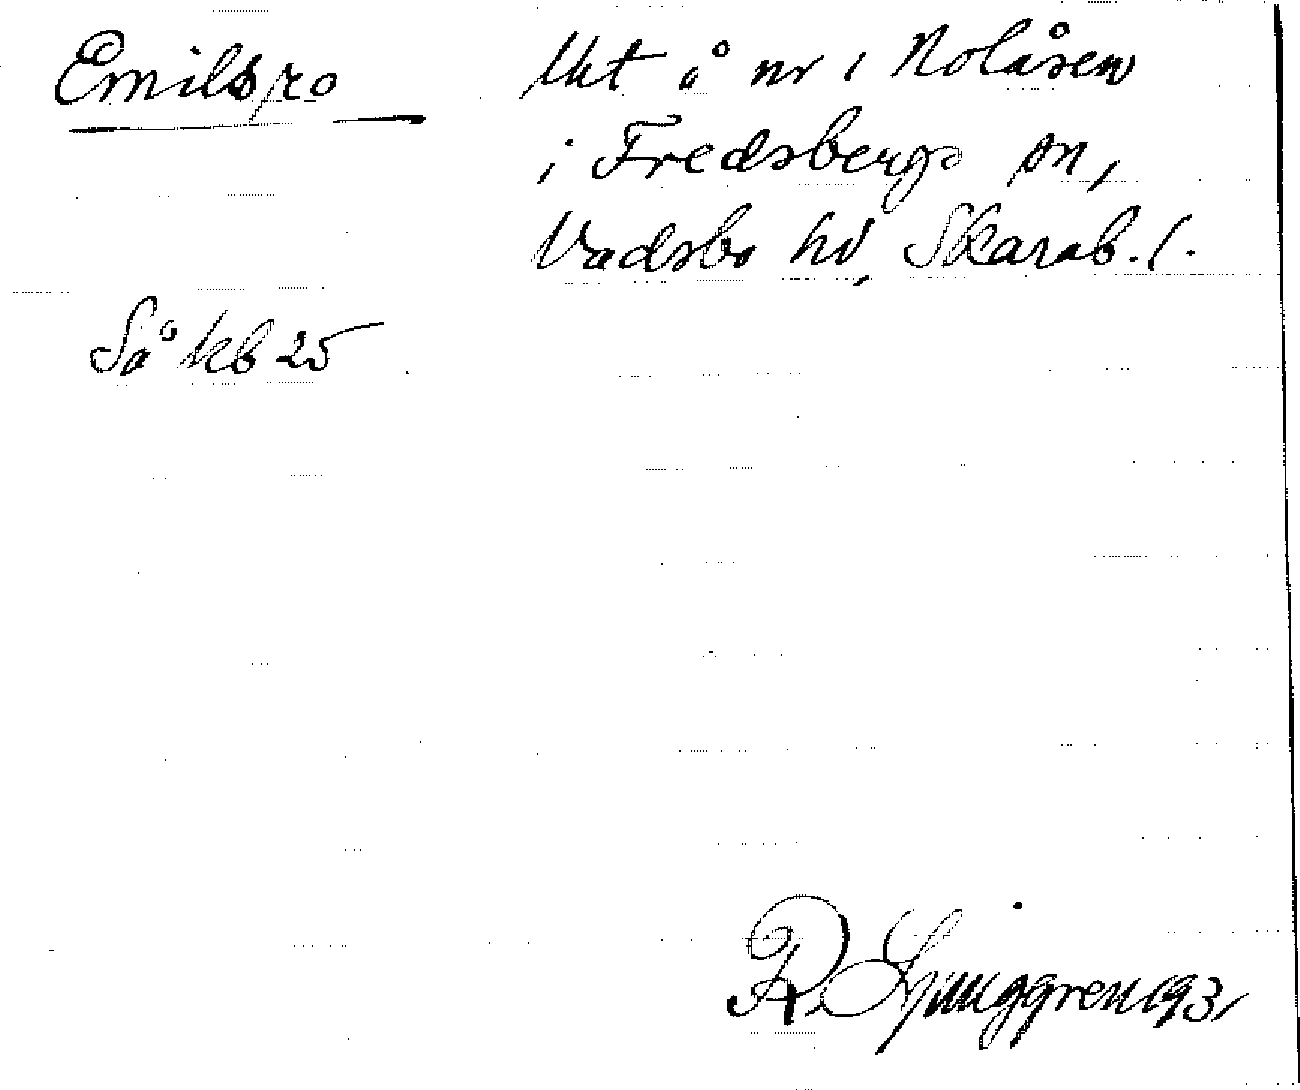 Emilsro
Utst å nr 1 Nolåsen
i Fredsbergs sn,
Vadsbo hd, Skarab. l.
Så kb 25
R Ljunggren 1931